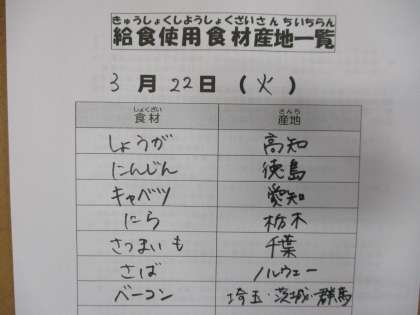 きゅうしょくしようしょくざいさんちいちらん
給食使用食材産地一覧
3月22日(火)
しょくざい さんち
食材 産地
しょうが 高知
にんじん 徳島
キャベツ 愛知
にら 栃木
さつまいも 千葉
さば ノルウェー
ベーコン 埼玉・茨城・群馬